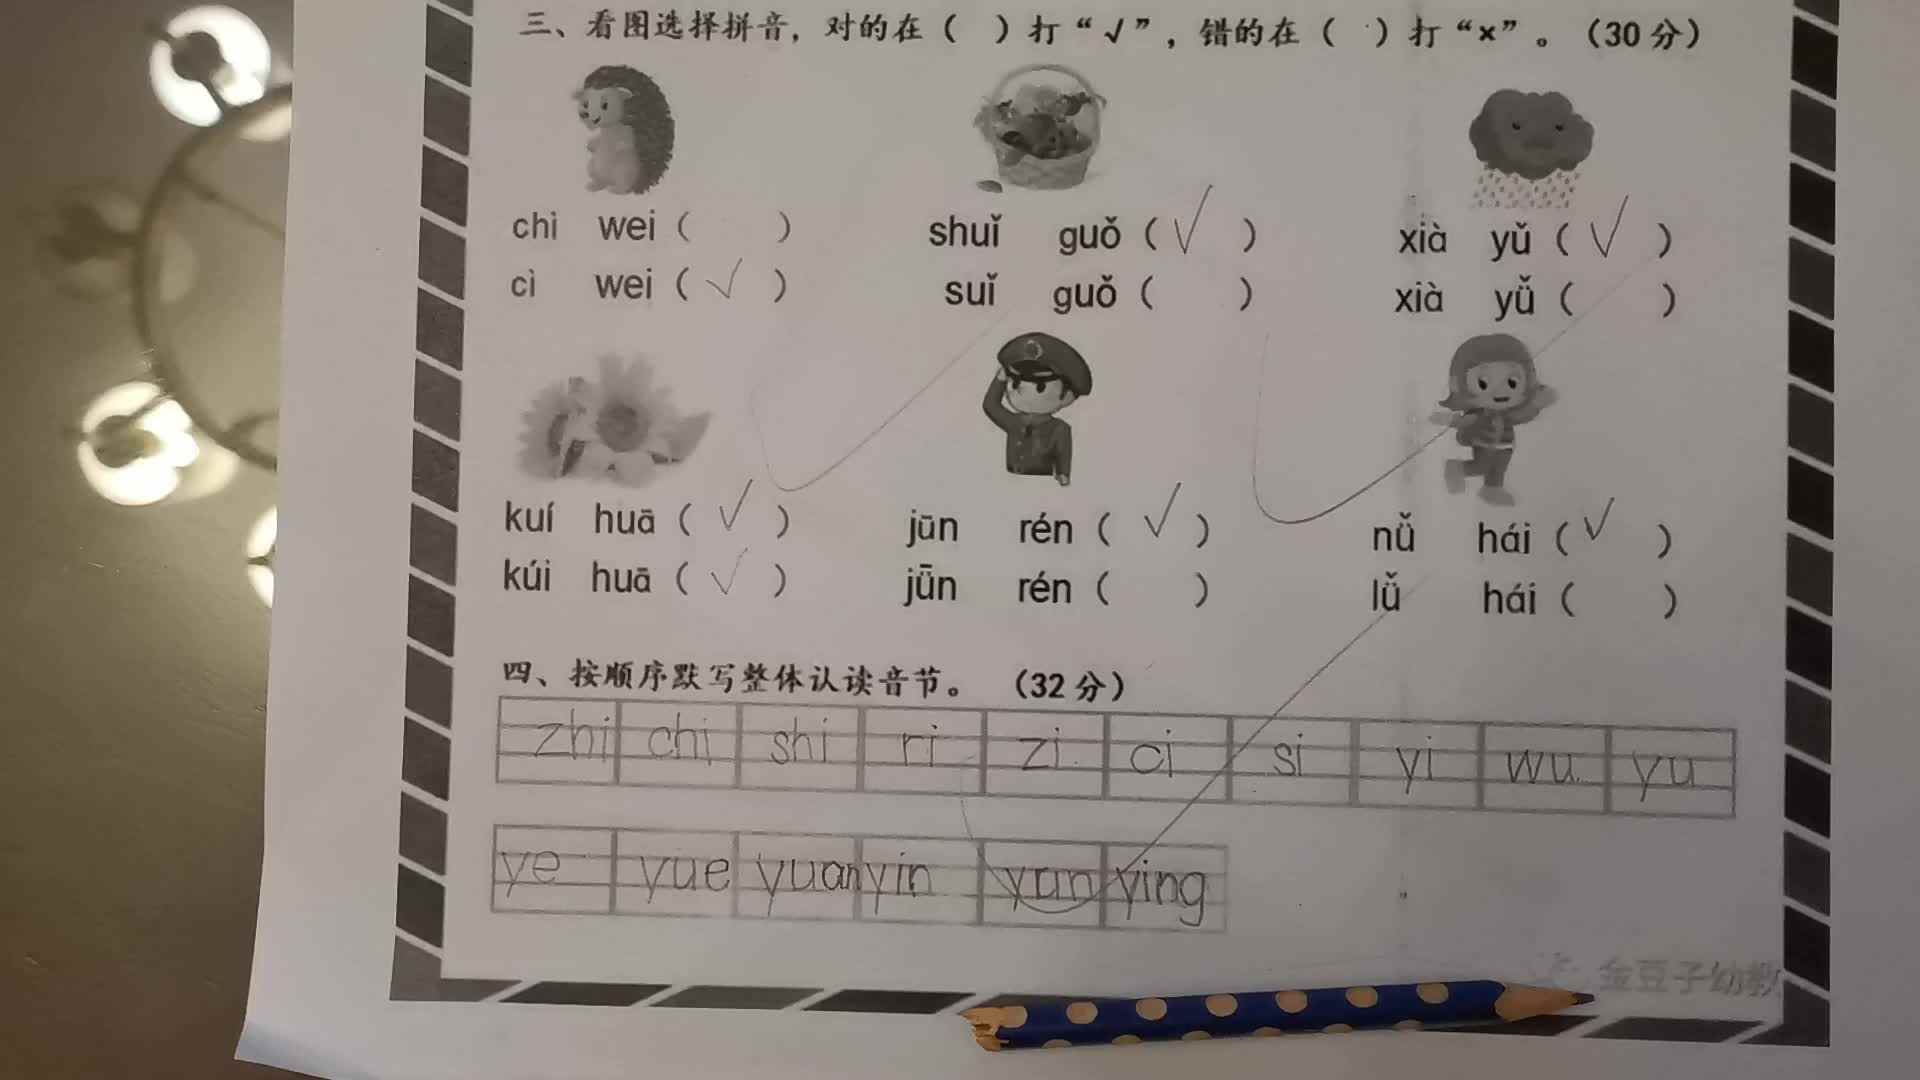 三、看图选择拼音，对的在（ ）打“√”，错的在（ ）打“×”。（30分）
chì wei（ ） shuǐ guǒ（√ ） xià yǔ（√ ）
cì wei（√ ） suǐ guǒ（ ） xià yǚ（ ）
kuí huā（√ ） jūn rén（√ ） nǚ hái（√ ）
kúi huā（√ ） jǖn rén（ ） lǚ hái（ ）
四、按顺序默写整体认读音节。（32分）
zhi chi shi ri zi ci si yi wu yu
ye yue yuan yin yun ying
金豆子幼教